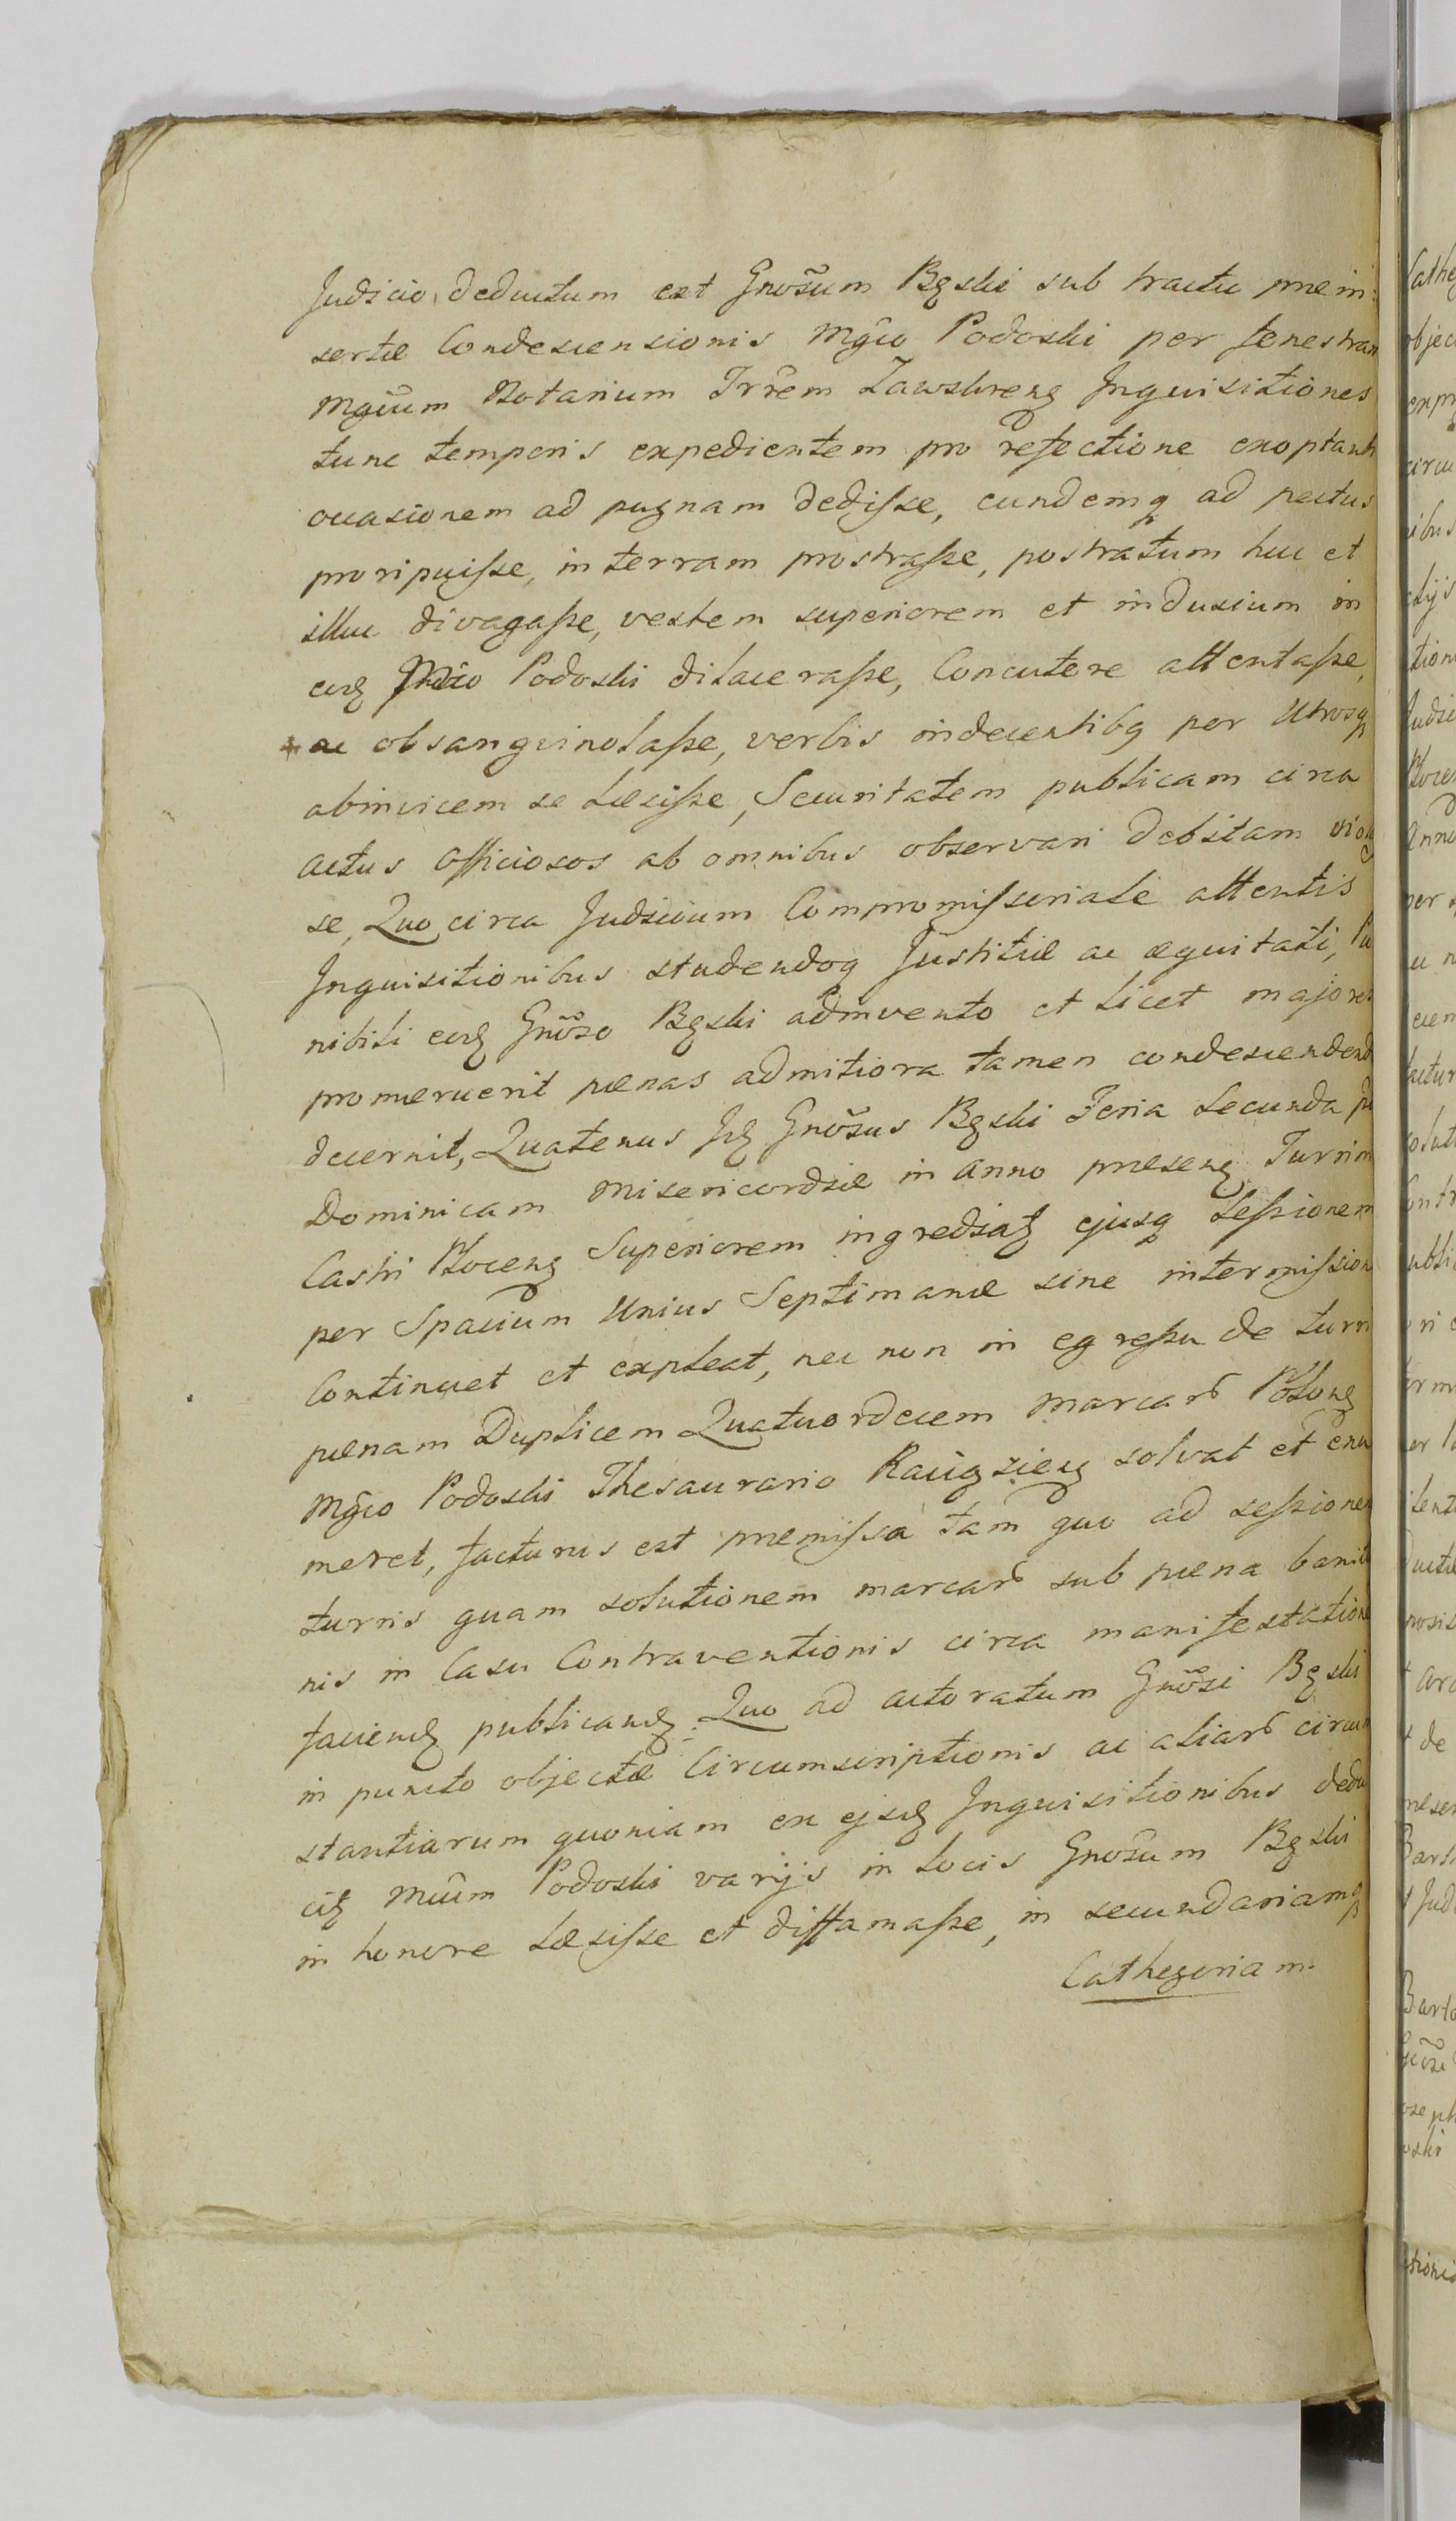 Judicio, deductum est Gnõsum Bęski sub tractu præin:
sertæ Condescensionis Mgco Podoski per fenestram
Mgcum Notarium Trrem Zawskrenʒ Inquisitiones
tunc temporis expedientem pro refectione exoptanti
occasionem ad pugnam dedisse, eundemq ad pectus
proripuisse, in terram prostrasse, postratum huc et
illuc divagasse, vestem superiorem et indusium in
eodʒ Mco Podoski dilacerasse, Concutere attentasse,
ac obsanguinolasse, verbis indecentibq per Utrosq
abinvicem se læsisse, Securitatem publicam circa
actus Officiosos ab omnibus observari debitam viola
se, Quo circa Judicium Compromissoriale attentis
Inquisitionibus studendoq Justitiæ ac æquitati, Pu
nibili eodʒ Gnõso Bęski adinvento et licet majores
promeruerit pænas ad mitiora tamen condescendend
decernit, Quatenus Idʒ Gnõsus Bęski Feria Secunda
Dominicam Misericordiæ in Anno præsenʒ Turrim
Castri Plocenʒ Superiorem ingrediatʒ ejusq Sessionem
per Spacium Unius Septimanæ sine intermission
Continuet et expleat, nec non in egressu de turri
pænam Duplicem Quatuordecem Marcarũ Polonʒ
Mgco Podoski Thesaurario Raciązienʒ solvat et enu
meret, facturus est præmissa tam quo ad sessionem
turris quam solutionem marcarũ sub pæna banit
nis in Casu Contraventionis circa manifestatione
faciendʒ publicandʒ. Quo ad actoratum Gnõsi Bęski
in puncto objectæ Circumscriptionis ac aliarũ circum
stantiarum quoniam ex ejsdʒ Inquisitionibus dedu
citʒ Mcum Podoski varijs in locis Gnõsum Bęski
in honore læsisse et diffamasse, in secundariamq
Cathegoriam.